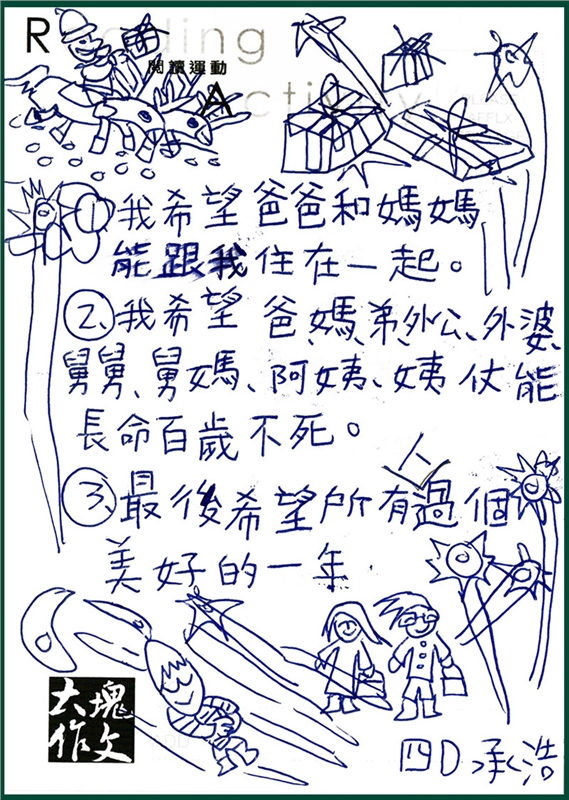 Reading
閱讀運動
Activity
①我希望爸爸和媽媽
能跟我住在一起。
②我希望爸、媽、弟、外公、外婆、
舅舅、舅媽、阿姨、姨仗能
長命百歲不死。
③、最後希望所有人過個
美好的一年.
大塊
作文
四D承浩